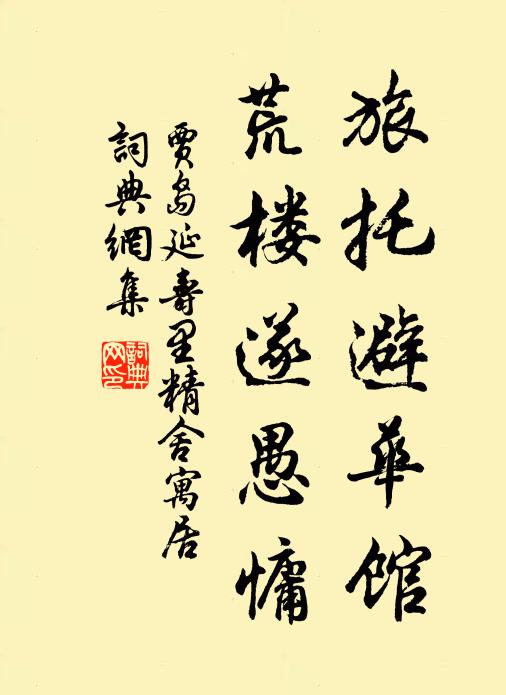 旅托避华馆
荒楼遂愚慵
贾岛延寿里精舍寓居
詞典網集
詞典
网印